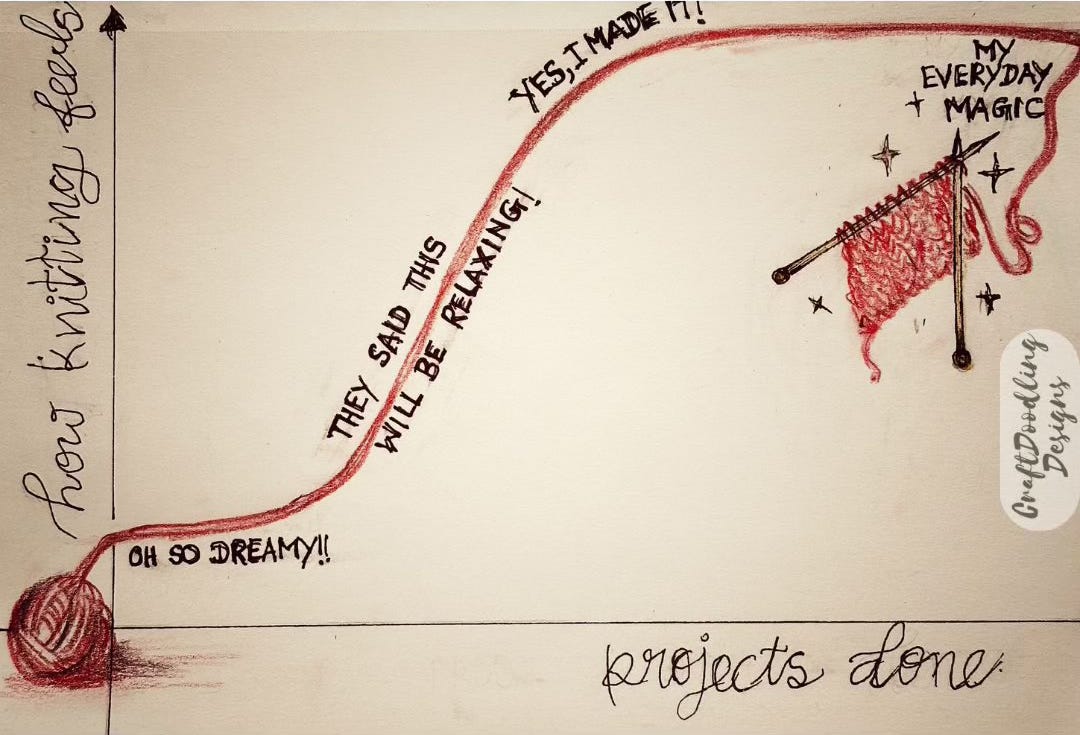 how knitting feels
YES, I MADE IT!
MY
EVERYDAY
MAGIC
THEY SAID THIS
WILL BE RELAXING!
OH SO DREAMY!!
projects done
CraftDoodling
Designs